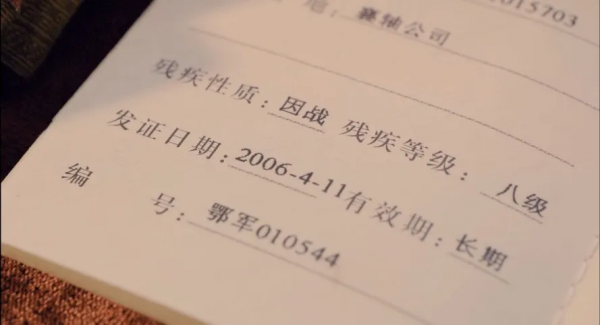 015703
地 襄轴公司
残疾性质: 因战 残疾等级: 八级
发证日期: 2006-4-11 有效期: 长期
编 号: 鄂军010544